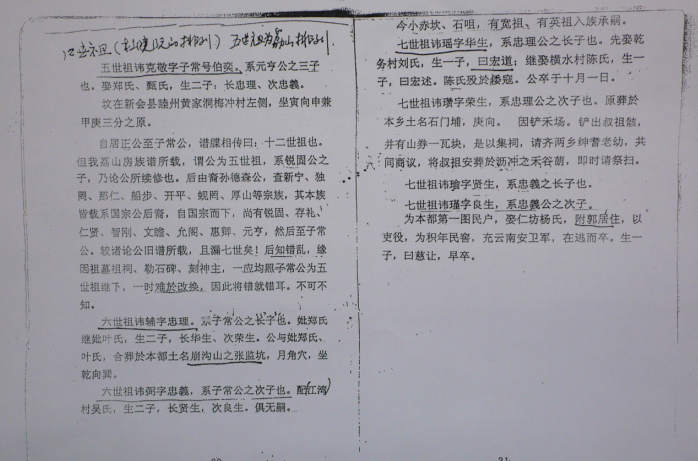 五世祖讳克敬字子常号伯奕。系元亨公之三子
也。娶郑氏、甄氏，生二子：长忠理、次忠義。
坟在新会县睦州黄家洞梅冲村左侧，坐寅向申兼
甲庚三分之原。
自居正公至子常公，谱牒相传曰：十二世祖也。
但我荔山房族谱所载，谓公为五世祖，系锐固公之
子，乃论公所续修也。后由裔孙德森公，查新宁、独
罔、那仁、船步、开平、蚬罔、厚山等宗族，其本族
皆载系国宗公后裔，自国宗而下，尚有锐固、存礼、
仁贤、智刚、文瞻、允阁、惠卿、元亨，然后至子常
公。较诸论公旧谱所载，且漏七世矣！后知错乱，缘
因祖墓祖祠、勒石碑、刻神主，一应均照子常公为五
世祖继下，一时难於改换，因此将错就错耳。不可不
知。
六世祖讳辅字忠理。系子常公之长子也。妣郑氏
继妣叶氏，生二子，长华生、次荣生。公与妣郑氏、
叶氏，合葬於本都土名崩沟山之张监坑，月角穴，坐
乾向巽。
六世祖讳弼字忠義，系子常公之次子也。配江湾
村吴氏，生二子，长贤生，次良生。俱无嗣。
今小赤坎、石咀，有宽祖、有英祖入族承嗣。
七世祖讳瑶字华生，系忠理公之长子也。先娶乾
务村刘氏，生一子，曰宏道；继娶横水村陈氏，生一
子，曰宏述。陈氏殁於倭寇。公卒于十月一日。
七世祖讳瓚字荣生，系忠理公之次子也。原葬於
本乡土名石门埔，庚向。 因铲禾场。铲出叔祖骸，
并有山券一瓦块，是以集祠，请齐两乡绅耆老幼，共
同商议，将叔祖安葬於沥冲之禾谷萌，即时请祭扫。
七世祖讳瑜字贤生，系忠義之长子也。
七世祖讳瑾字良生，系忠義公之次子。
为本部第一图民户，娶仁坊杨氏，附郭居住，以
吏役，为积年民害，充云南安卫军，在逃而卒。生一
子，曰慈让，早卒。